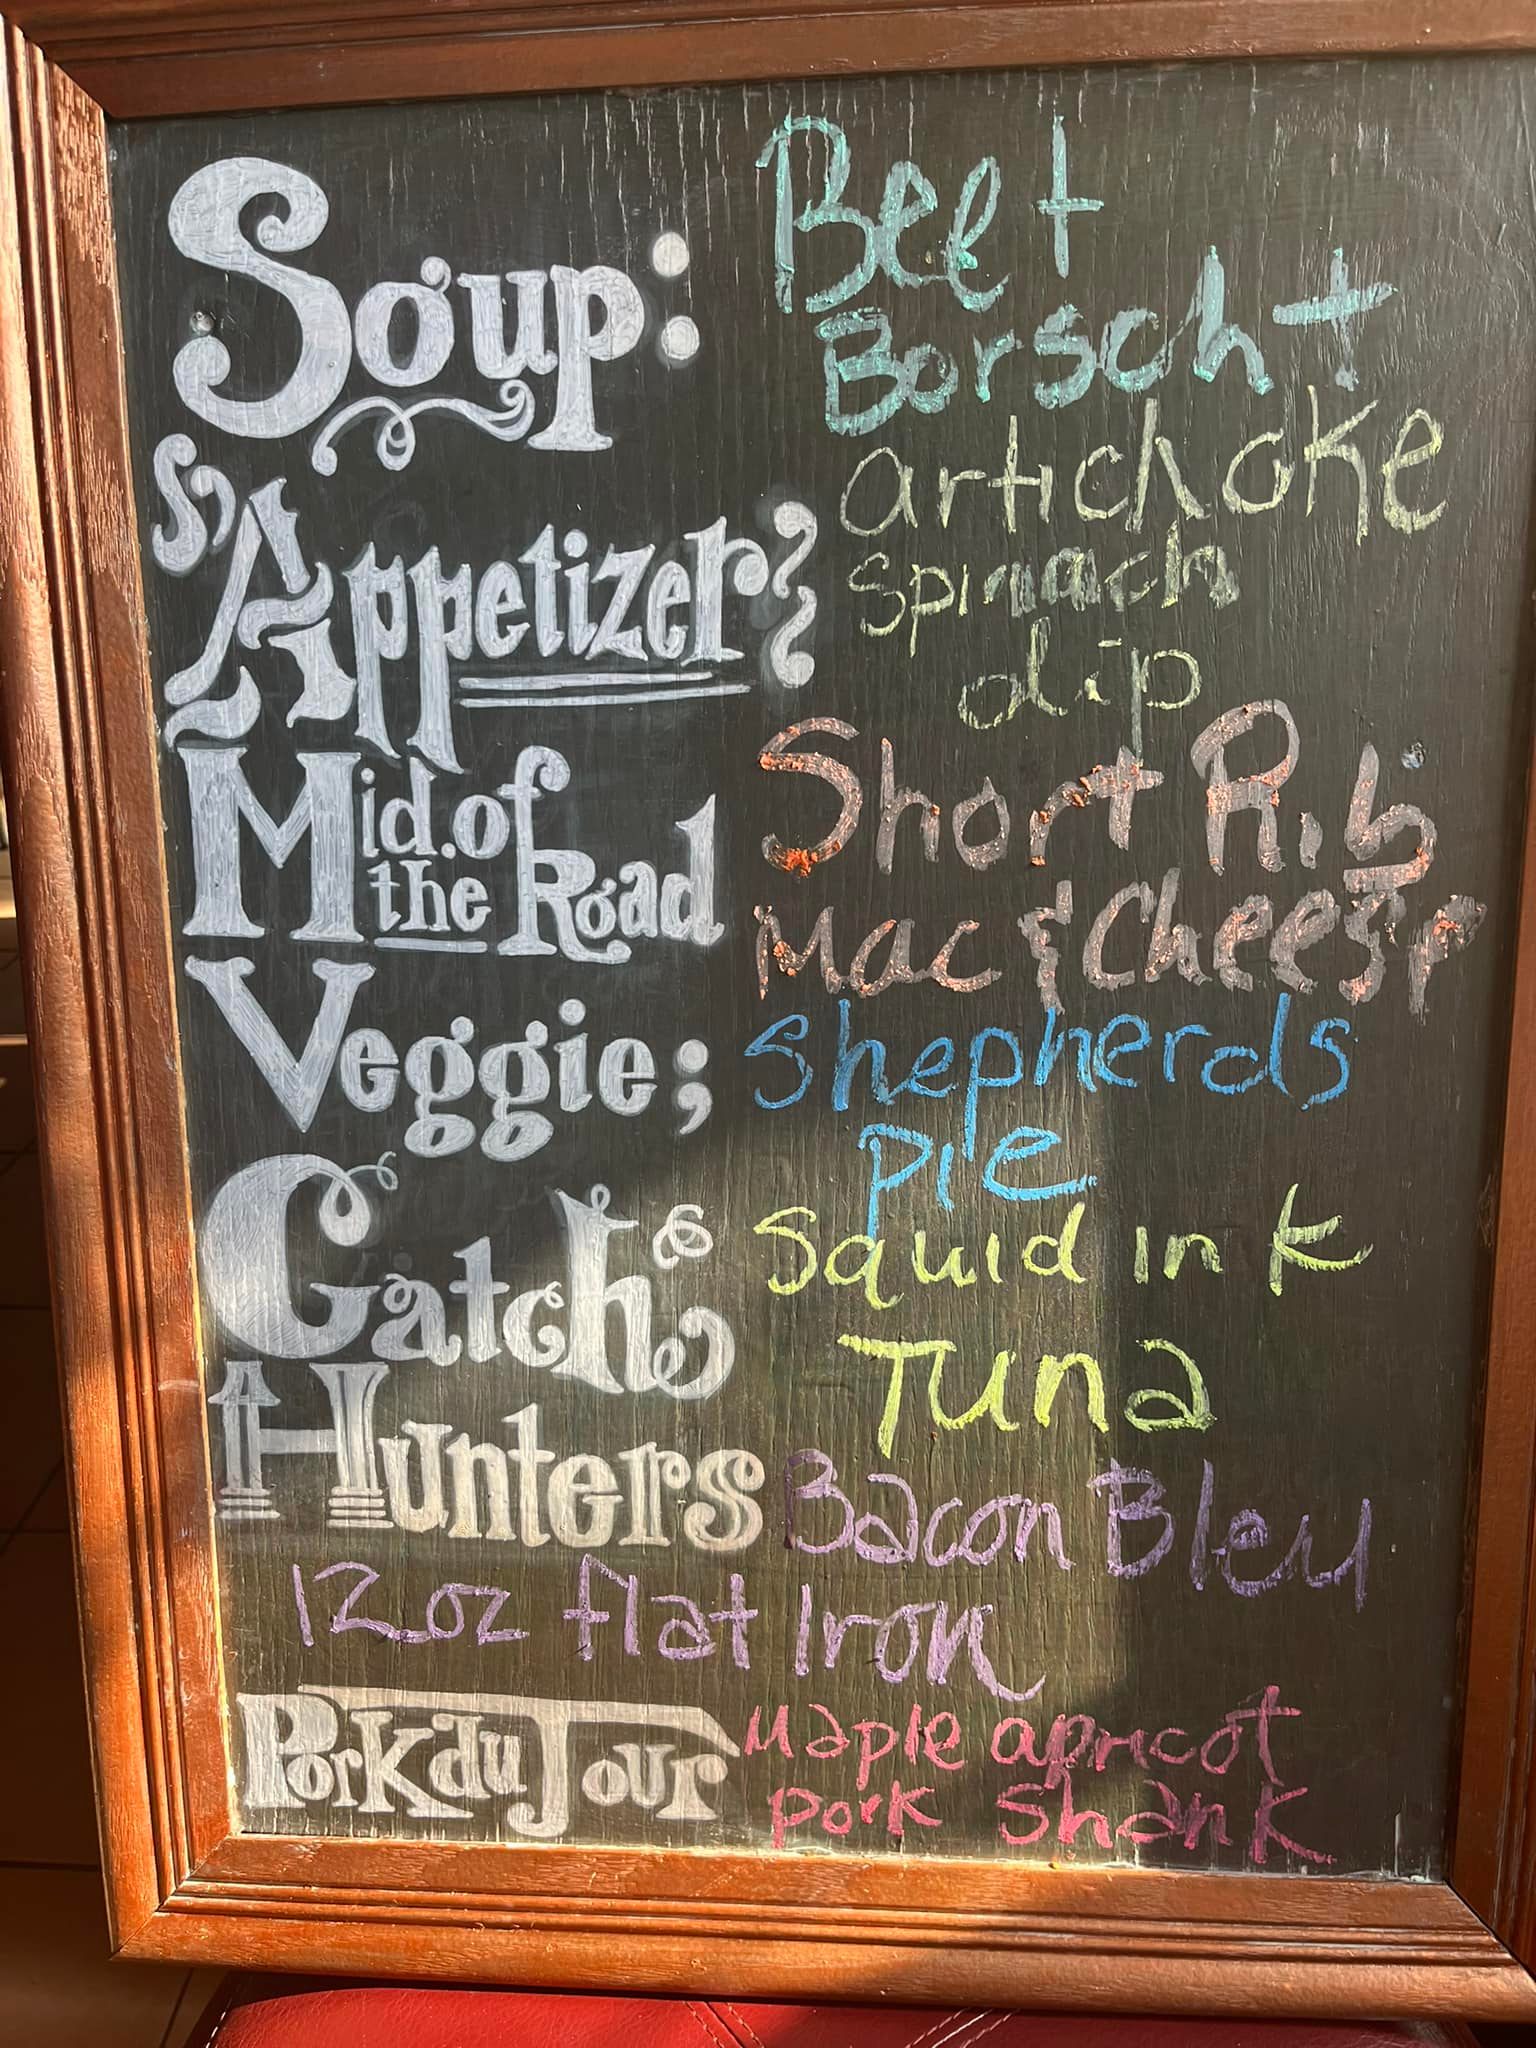 Soup: Beet
Borscht
Appetizer artichoke
spinach
dip
Mid. of the Road Short Rib
Mac & Cheese
Veggie; Shepherds
Pie
Catch Squid ink
Tuna
Hunters Bacon Bleu
12 oz flat Iron
Pork du Jour Maple apricot
pork shank